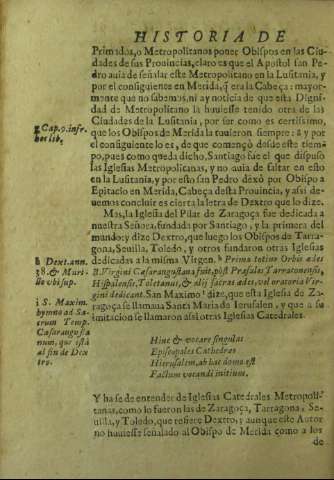 HISTORIA DE
Primadas, o Metropolitanos poner Obispos en las Ciu
dades de sus Prouincias, claro es que el Apostol san Pe-
dro auia de señalar este Metropolitano en la Lusitania, y
por el consiguiente en Merida, q̃ era la Cabeça: mayor-
mente que no sabemos, ni ay noticia de que esta Digni-
dad de Metropolitano la huuiesse tenido otra de las
Ciudades de la Lusitania, por ser como es certissimo,
que los Obispos de Merida la tuuieron siempre: g y por
el consiguiente lo es, de que començò desde este tiem
po, pues como queda dicho, Santiago fue el que dispuso
las Iglesias Metropolitanas, y no auia de faltar en esto
en la Lusitania, y por esto san Pedro dexò por Obispo a
Epitacio en Merida, Cabeça desta Prouincia, y assi de-
uemos concluir es cierta la letra de Dextro que lo dize.
g Cap. 9. infr-
hoc lib.
Mas, la Iglesia del Pilar de Zaragoça fue dedicada a
nuestra Señora, fundada por Santiago, y la primera del
mundo: y dize Dextro, que luego los Obispos de Tarra-
gona, Seuilla, Toledo, y otros fundaron otras Iglesias
dedicadas a la misma Virgen. h Prima totius Orbis ades
B. Virgini Cæsaraugustana fuit, post Præsules Tarraconensis,
Hispalensis, Toletanus, & alij sacras ades, vel oratoria Vir-
gini dedicant. San Maximo i dize, que esta Iglesia de Za-
ragoça se llamaua Santa Maria de Ierusalen, y que a su
imitacion se llamaron assi otras Iglesias Catedrales.
h Dext. ann.
38. & Muri-
llo vbi sup.
i S. Maxim.
hymno ad Sa-
crum Temp.
Cæsaraugusta
num, que està
al fin de Dex
tro.
Hinc & vocare singulas
Episcopales Cathedras
Hierusalem, ab hac domo est
Factum vocandi initium.
Y ha se de entender de Iglesias Catedrales Metropoli-
tanas, como lo fueron las de Zaragoça, Tarragona, Se-
uilla, y Toledo, que refiere Dextro; y aunque este Autor
no huuiesse señalado al Obispo de Merida como a los
de